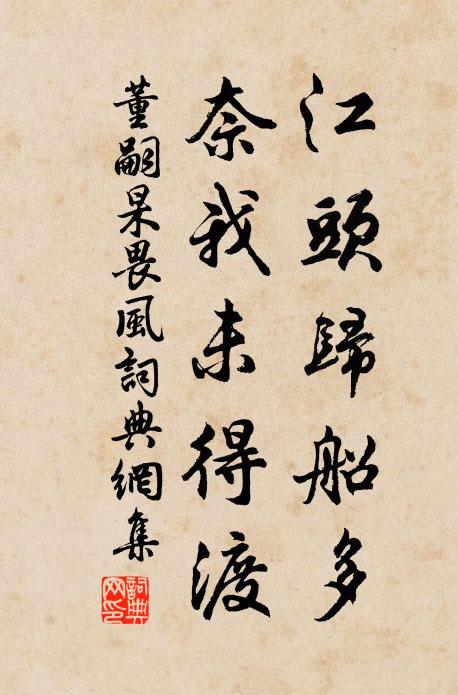 江頭歸船多
奈我未得渡
董嗣杲畏風詞典網集
詞典網印